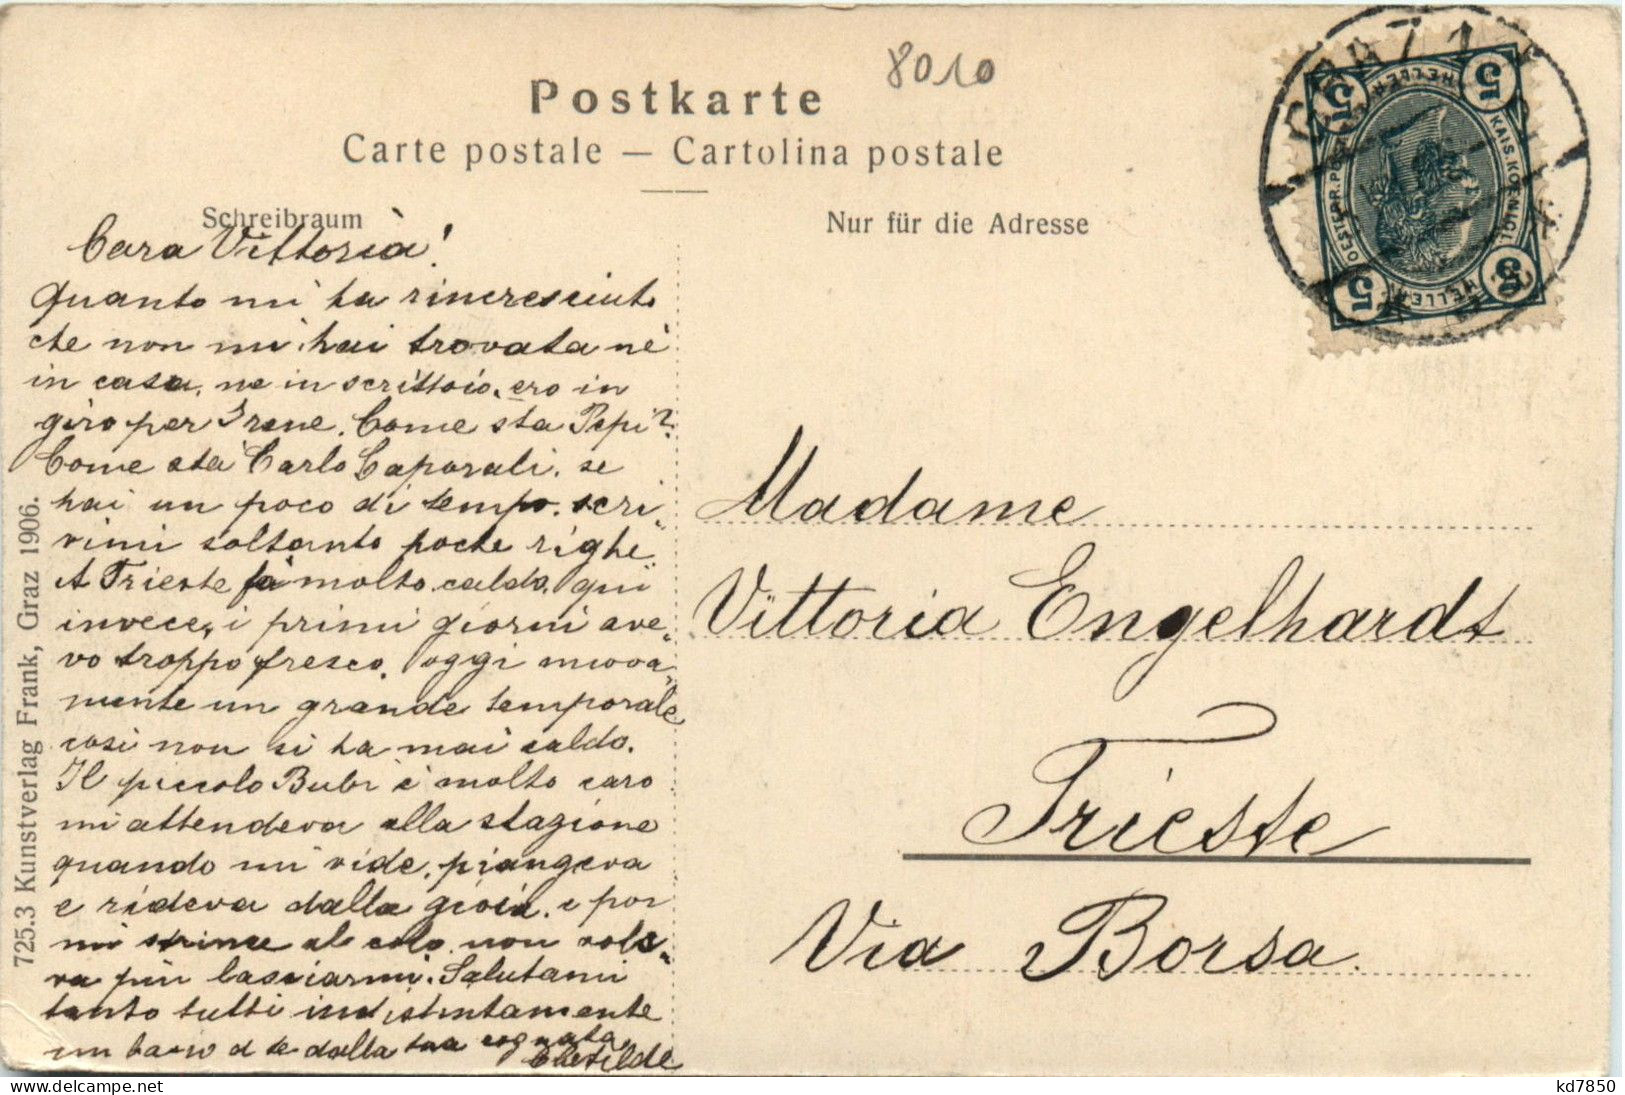 8010
Postkarte
Carte postale — Cartolina postale
Schreibraum
Nur für die Adresse
Cara Vittoria!
Quanto mi ha rincresciuto
che non mi hai trovata nè
in casa, ne in scrittoio, ero in
giro per Irene. Come sta Pepi?
Come stà Carlo Caporali. se
hai un poco di tempo. scri„
vimi soltanto poche righe
A Trieste fà molto caldo, qui
invece, i primi giorni ave„
vo troppo fresco. oggi nuova„
mente un grande temporale
cosi non si ha mai caldo.
Il piccolo Bubi è molto caro
mi attendeva alla stazione
quando mi vide, piangeva
e rideva dalla gioia. e poi
mi strinse al colo non vole„
va più lasciarmi. Salutami
tanto tutti indistintamente
un bacio a te dalla tua cognata
Clotilde
Madame
Vittoria Engelhardt
Trieste
Via Borsa.
725.3 Kunstverlag Frank, Graz 1906.
GRAZ 1
5 5 5 5
KAIS. KOENIGL.
OESTERR. POST
HELLER HELLER
delcampe.net
kd7850